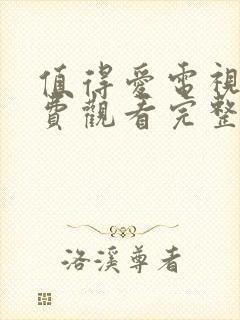 值得愛電視
費觀看完整
洛溪尊者